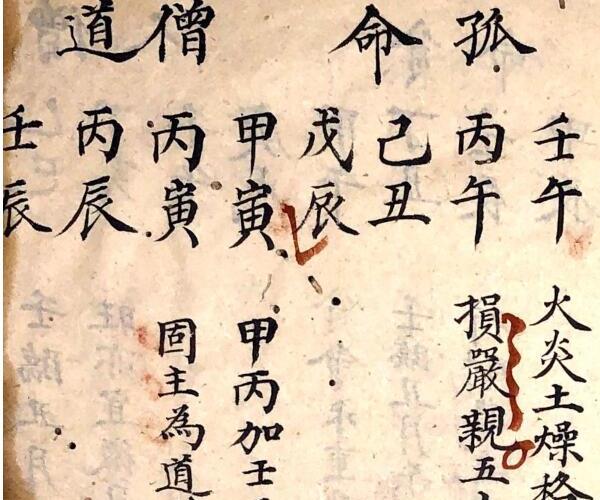 孤命
壬午
丙午
己丑
戊辰
火炎土燥格
損嚴親五
僧道
甲寅
丙寅
丙辰
壬辰
甲丙加壬
固主為道